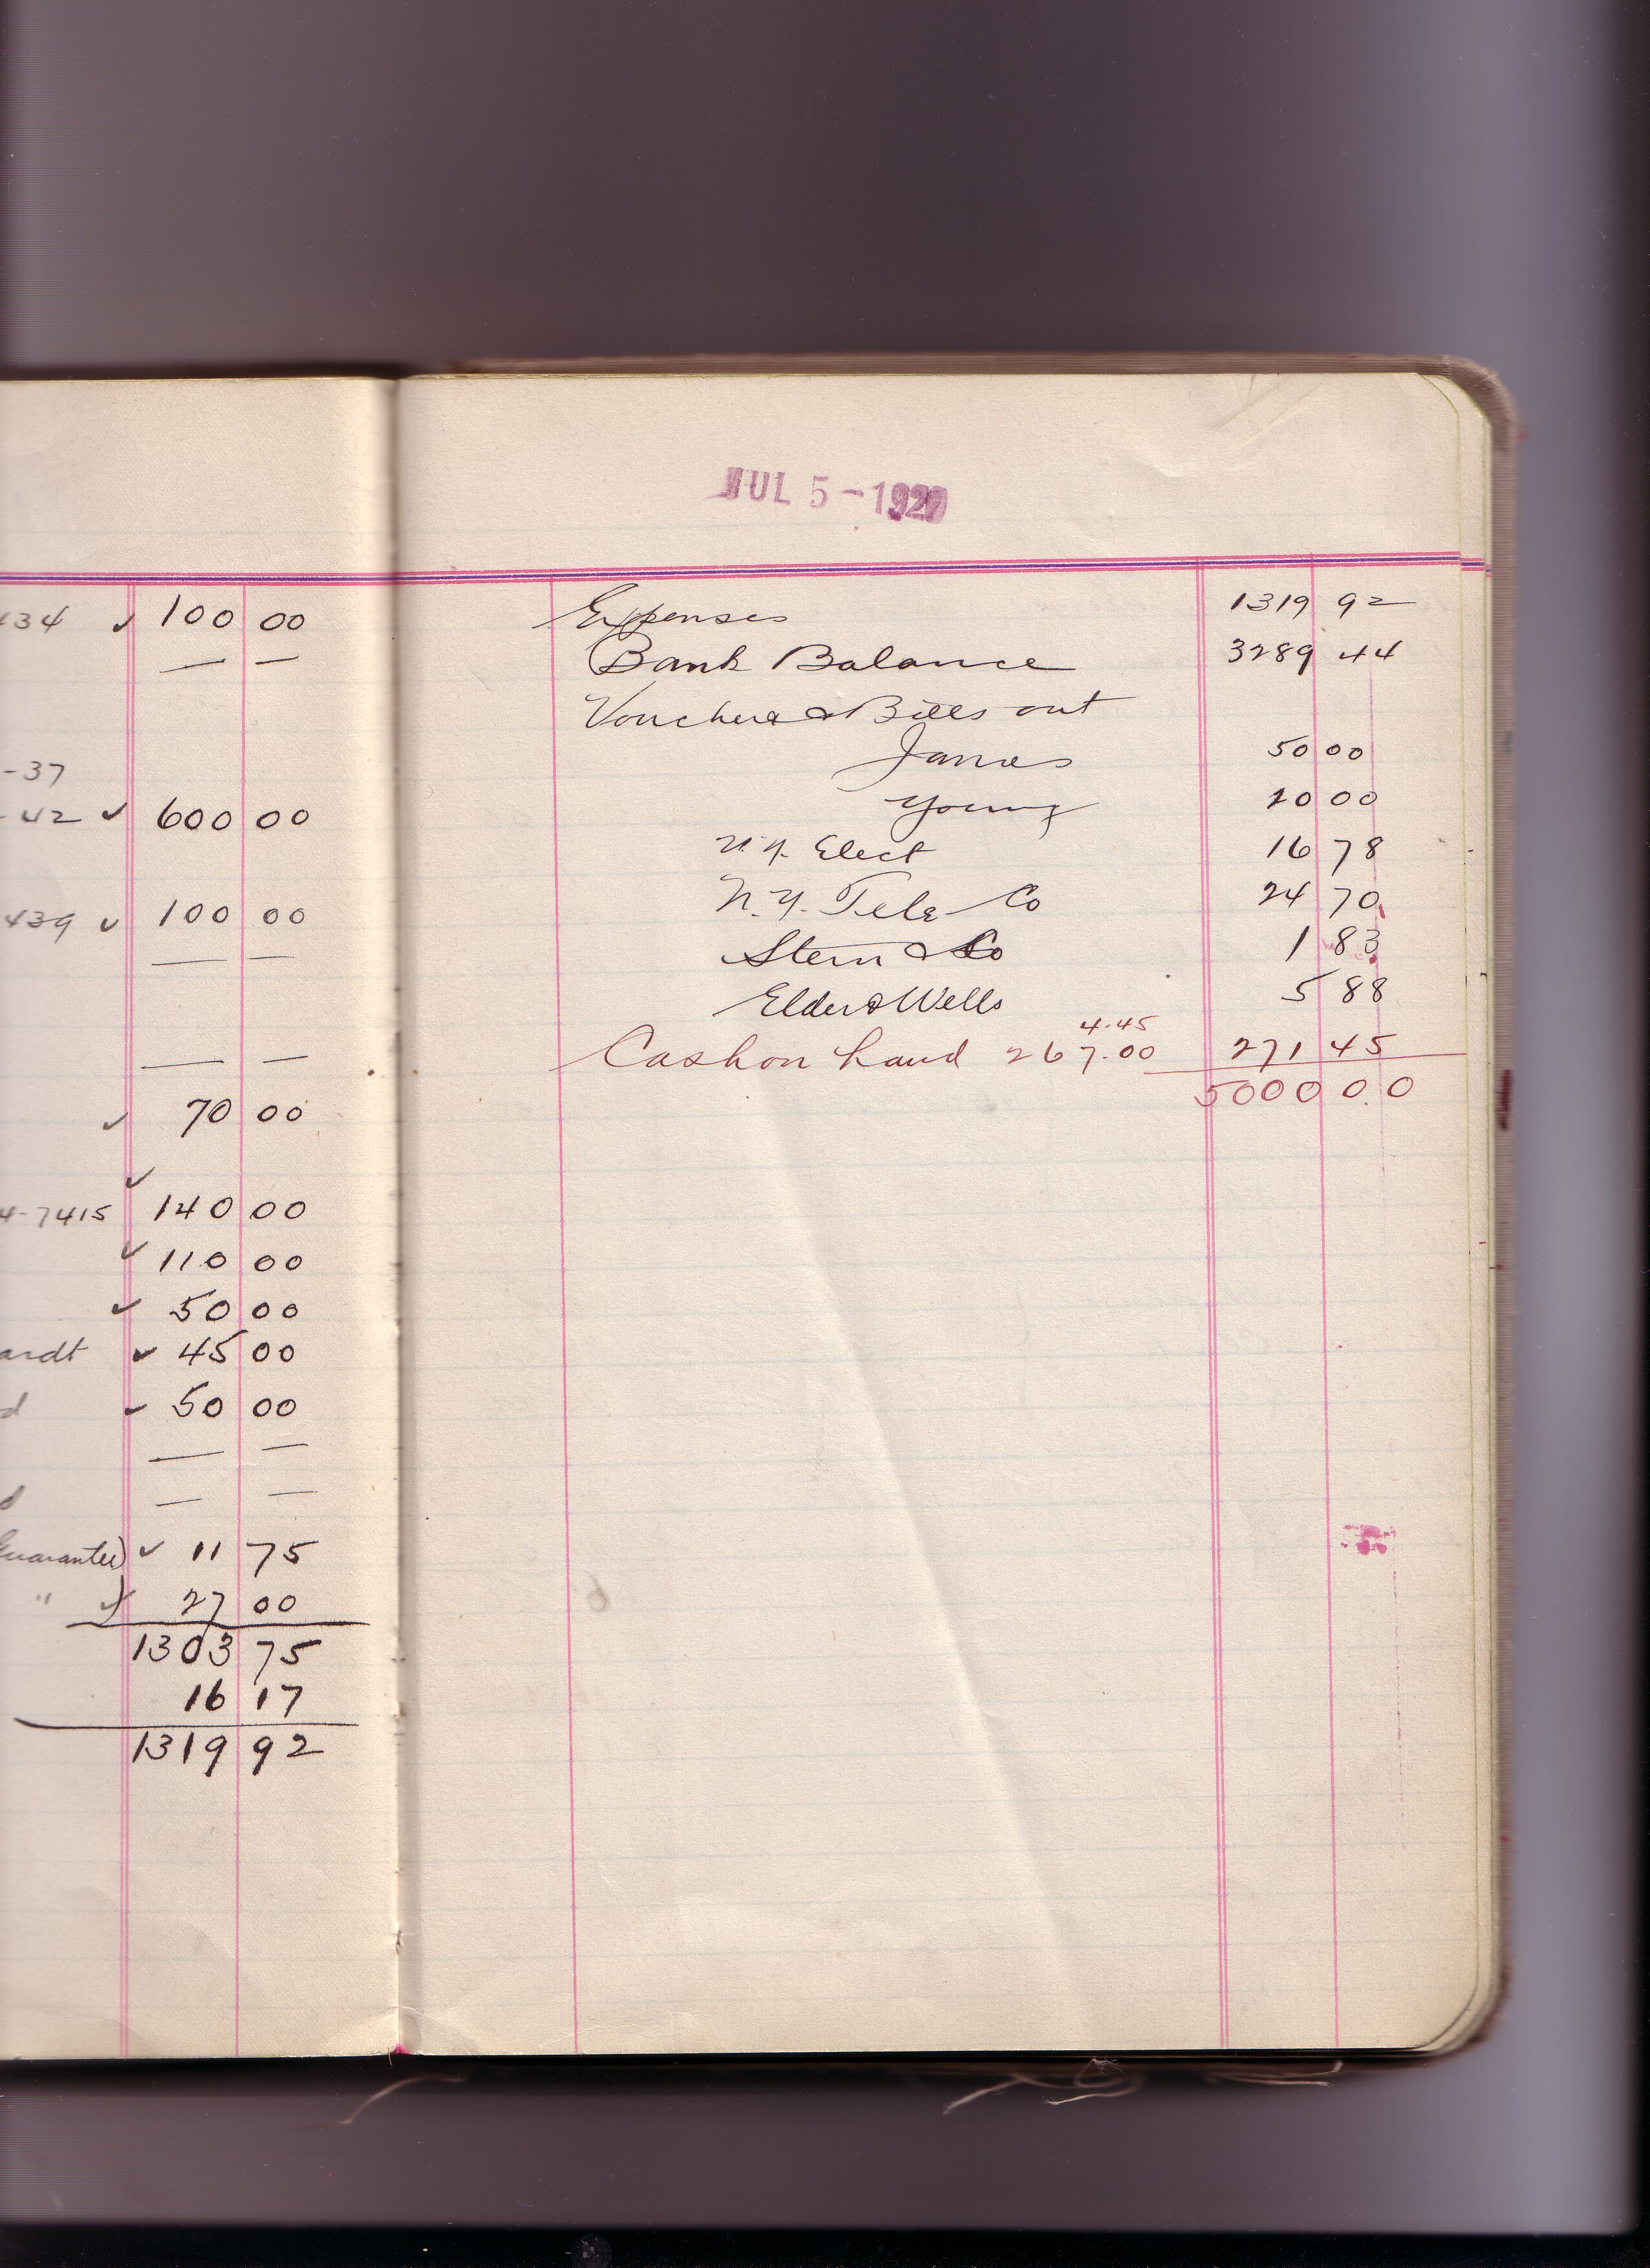 434 ✓ 100 00
— —
-37
-42 ✓ 600 00
439 ✓ 100 00
— —
— —
✓ 70 00
✓
4-7415 140 00
✓ 110 00
✓ 50 00
ardt ✓ 45 00
d ✓ 50 00
— —
d — —
Guarantee) ✓ 11 75
" ) ✓ 27 00
1303 75
16 17
1319 92
JUL 5-1920
Expenses 1319 92
Bank Balance 3289 44
Vouchers & Bills out
James 50 00
Young 20 00
N.Y. Elect 16 78
N.Y. Tele Co 24 70
Stern & Co 1 83
Elder & Wells 5 88
4.45
Cash on hand 267.00 271 45
5000 00